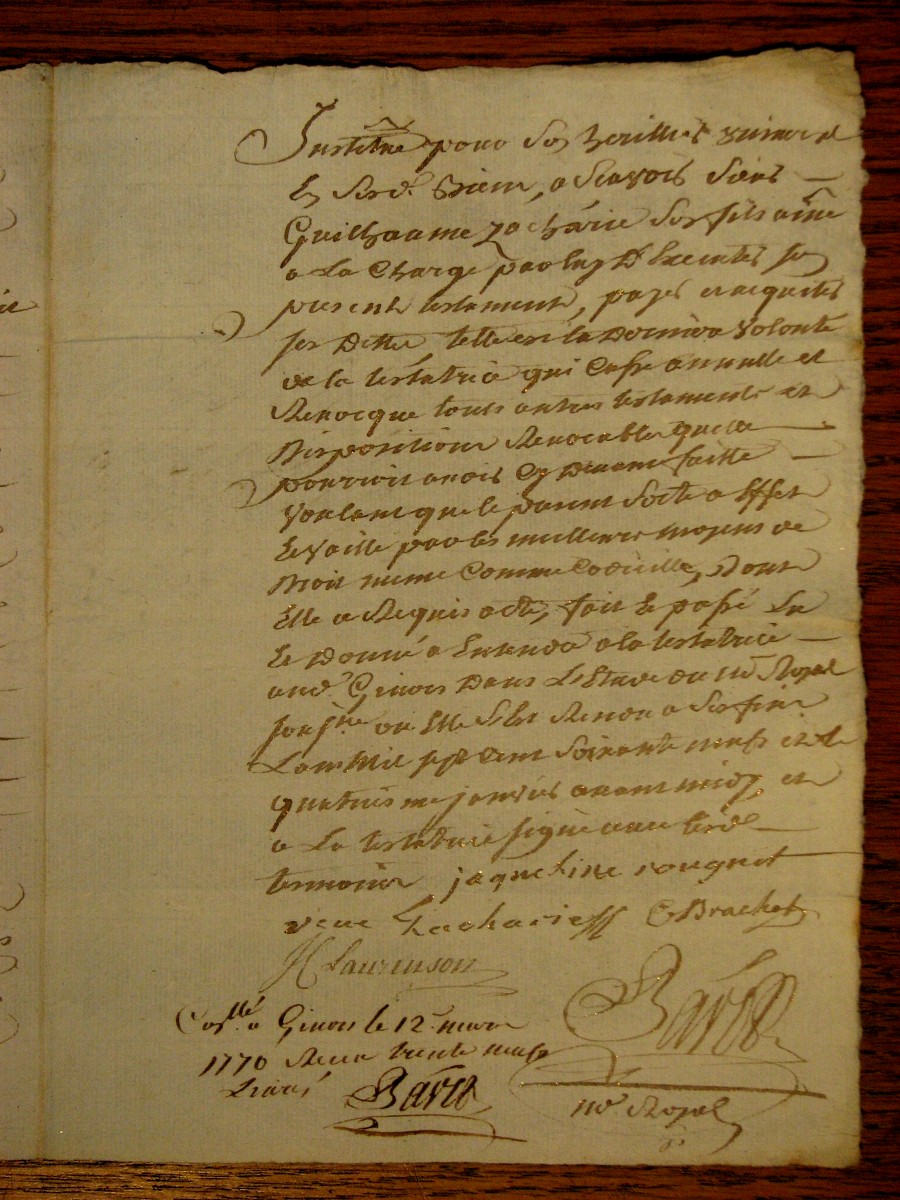 Institue pour son heritier universel
En Sesd. Biens, a scavoir Sieur
Guilhaume Zacharie son fils aine
a La Charge par luy D'Executer son
present testament, payer et acquitter
ses Dettes telle est la Derniere Volonté
de la testatrice qui Casse annulle et
Revocque touts autres testaments et
Dispositions Revocables quelle
pourroit avoir Cy Devant faitte
Voulant que le present Sorte a Effet
Et Vaille par les meilleurs moyens de
Droit meme Comme Codicille, Dont
Elle a Requis acte, fait Et passé Lu
Et Donné a Entendre a la testatrice
aud. Givors Dans L'Etude du no.re Royal
Sous.né ou Elle S'est Rendue a Ses fins
L'an Mil sept Cent Soixante neuf et le
quatrieme janvier avant midy, et
a La testatrice signé avec lesd.
temoins jaqueline rouguet
veuve Zacharie Brachet
Laurenson
Con.llé a Givors le 12 mars
1770 Recu trente neuf
Livres
no.re Royal